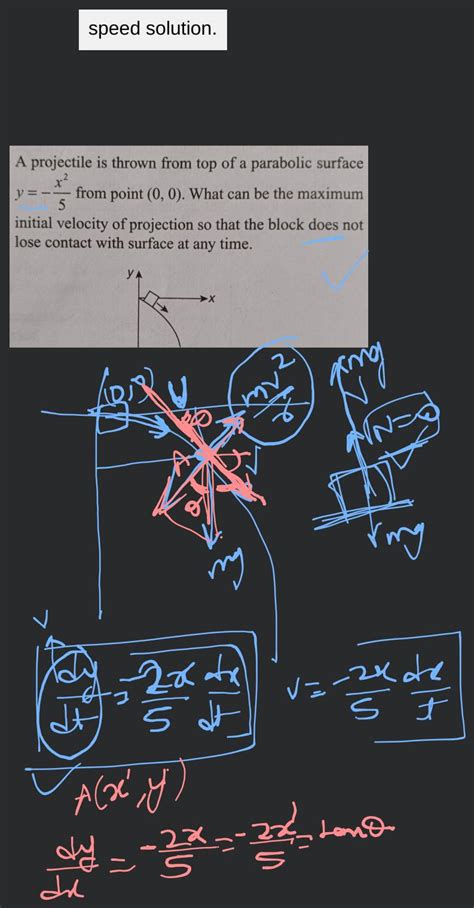 speed solution.
A projectile is thrown from top of a parabolic surface
y = -x²/5 from point (0, 0). What can be the maximum
initial velocity of projection so that the block does not
lose contact with surface at any time.
y
x
(0,0)
mv²
N=0
mg
mg
θ
V
dy/dt = -2x/5 dx/dt
v = -2x/5 dx/t
A(x', y')
dy/dx = -2x/5 = -2x'/5 = tanθ